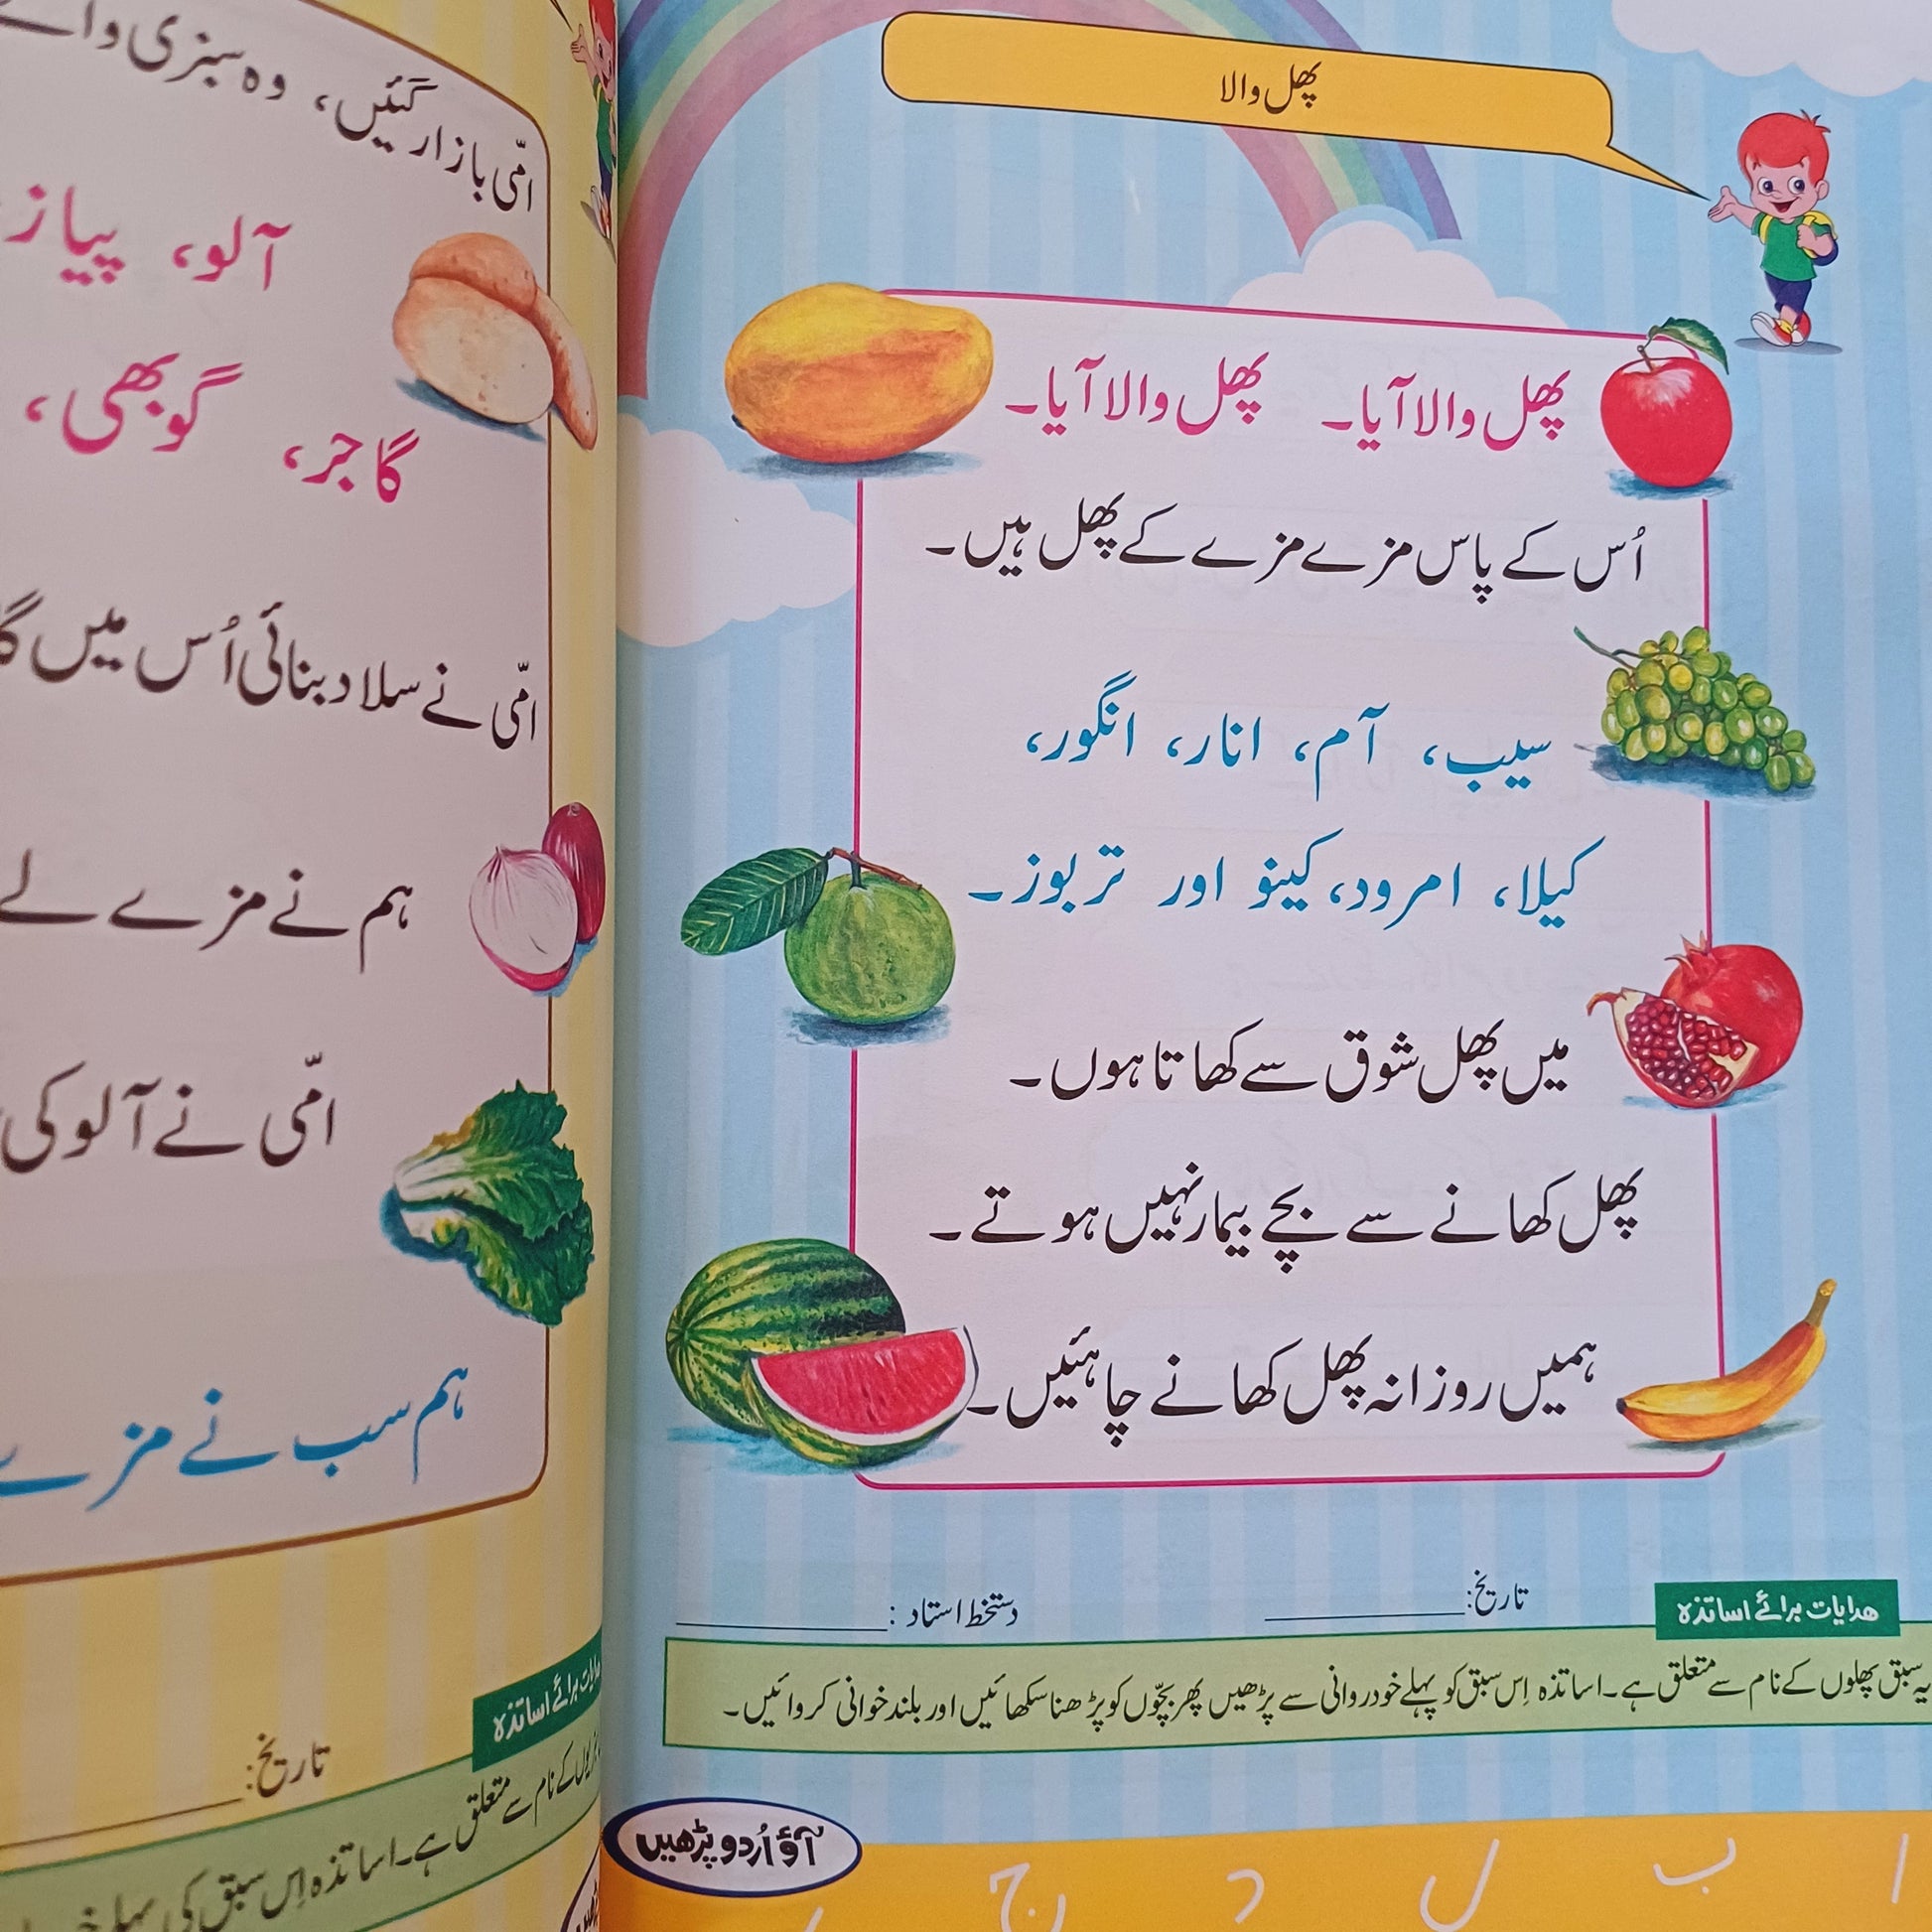 پھل والا
پھل والا آیا۔ پھل والا آیا۔
اُس کے پاس مزے مزے کے پھل ہیں۔
سیب، آم، انار، انگور،
کیلا، امرود، کینو اور تربوز۔
میں پھل شوق سے کھاتا ہوں۔
پھل کھانے سے بچے بیمار نہیں ہوتے۔
ہمیں روزانہ پھل کھانے چاہئیں۔
تاریخ: دستخط استاد :
ھدایات برائے اساتذہ
یہ سبق پھلوں کے نام سے متعلق ہے۔ اساتذہ اِس سبق کو پہلے خود روانی سے پڑھیں پھر بچّوں کو پڑھنا سکھائیں اور بلند خوانی کروائیں۔
آؤ اُردو پڑھیں
ا ب ل د ج
امّی بازار گئیں، وہ سبزی والے
آلو، پیاز
گاجر، گوبھی،
امّی نے سلاد بنائی اُس میں
ہم نے مزے لے
امّی نے آلو کی
ہم سب نے مزے
ھدایات برائے اساتذہ
تاریخ:
کے نام سے متعلق ہے۔ اساتذہ اِس سبق کی پہلے